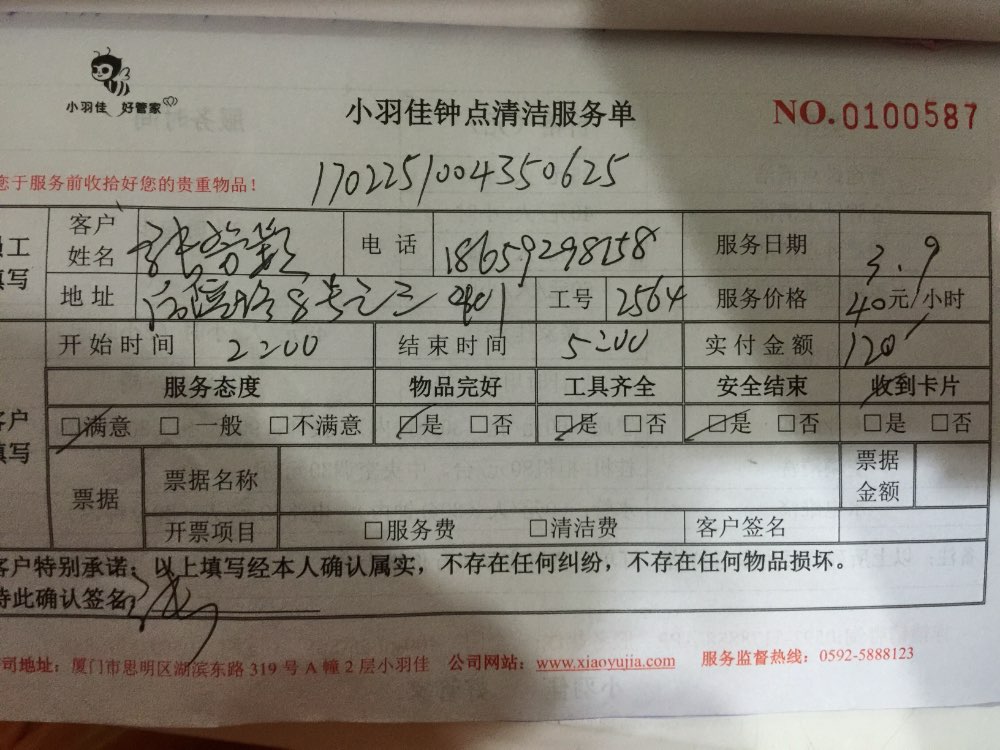 小羽佳 好管家
小羽佳钟点清洁服务单
NO.0100587
您于服务前收拾好您的贵重物品！
1702251004350625
员工填写
客户姓名 张 电话 18659298158 服务日期 3.9
地址 2801 工号 2564 服务价格 40元/小时
开始时间 2:00 结束时间 5:00 实付金额 120
客户填写
服务态度 物品完好 工具齐全 安全结束 收到卡片
□满意 □一般 □不满意 □是 □否 □是 □否 □是 □否 □是 □否
票据 票据名称 票据金额
开票项目 □服务费 □清洁费 客户签名
客户特别承诺：以上填写经本人确认属实，不存在任何纠纷，不存在任何物品损坏。
特此确认签名
司地址：厦门市思明区湖滨东路 319 号 A 幢 2 层小羽佳 公司网站：www.xiaoyujia.com 服务监督热线：0592-5888123